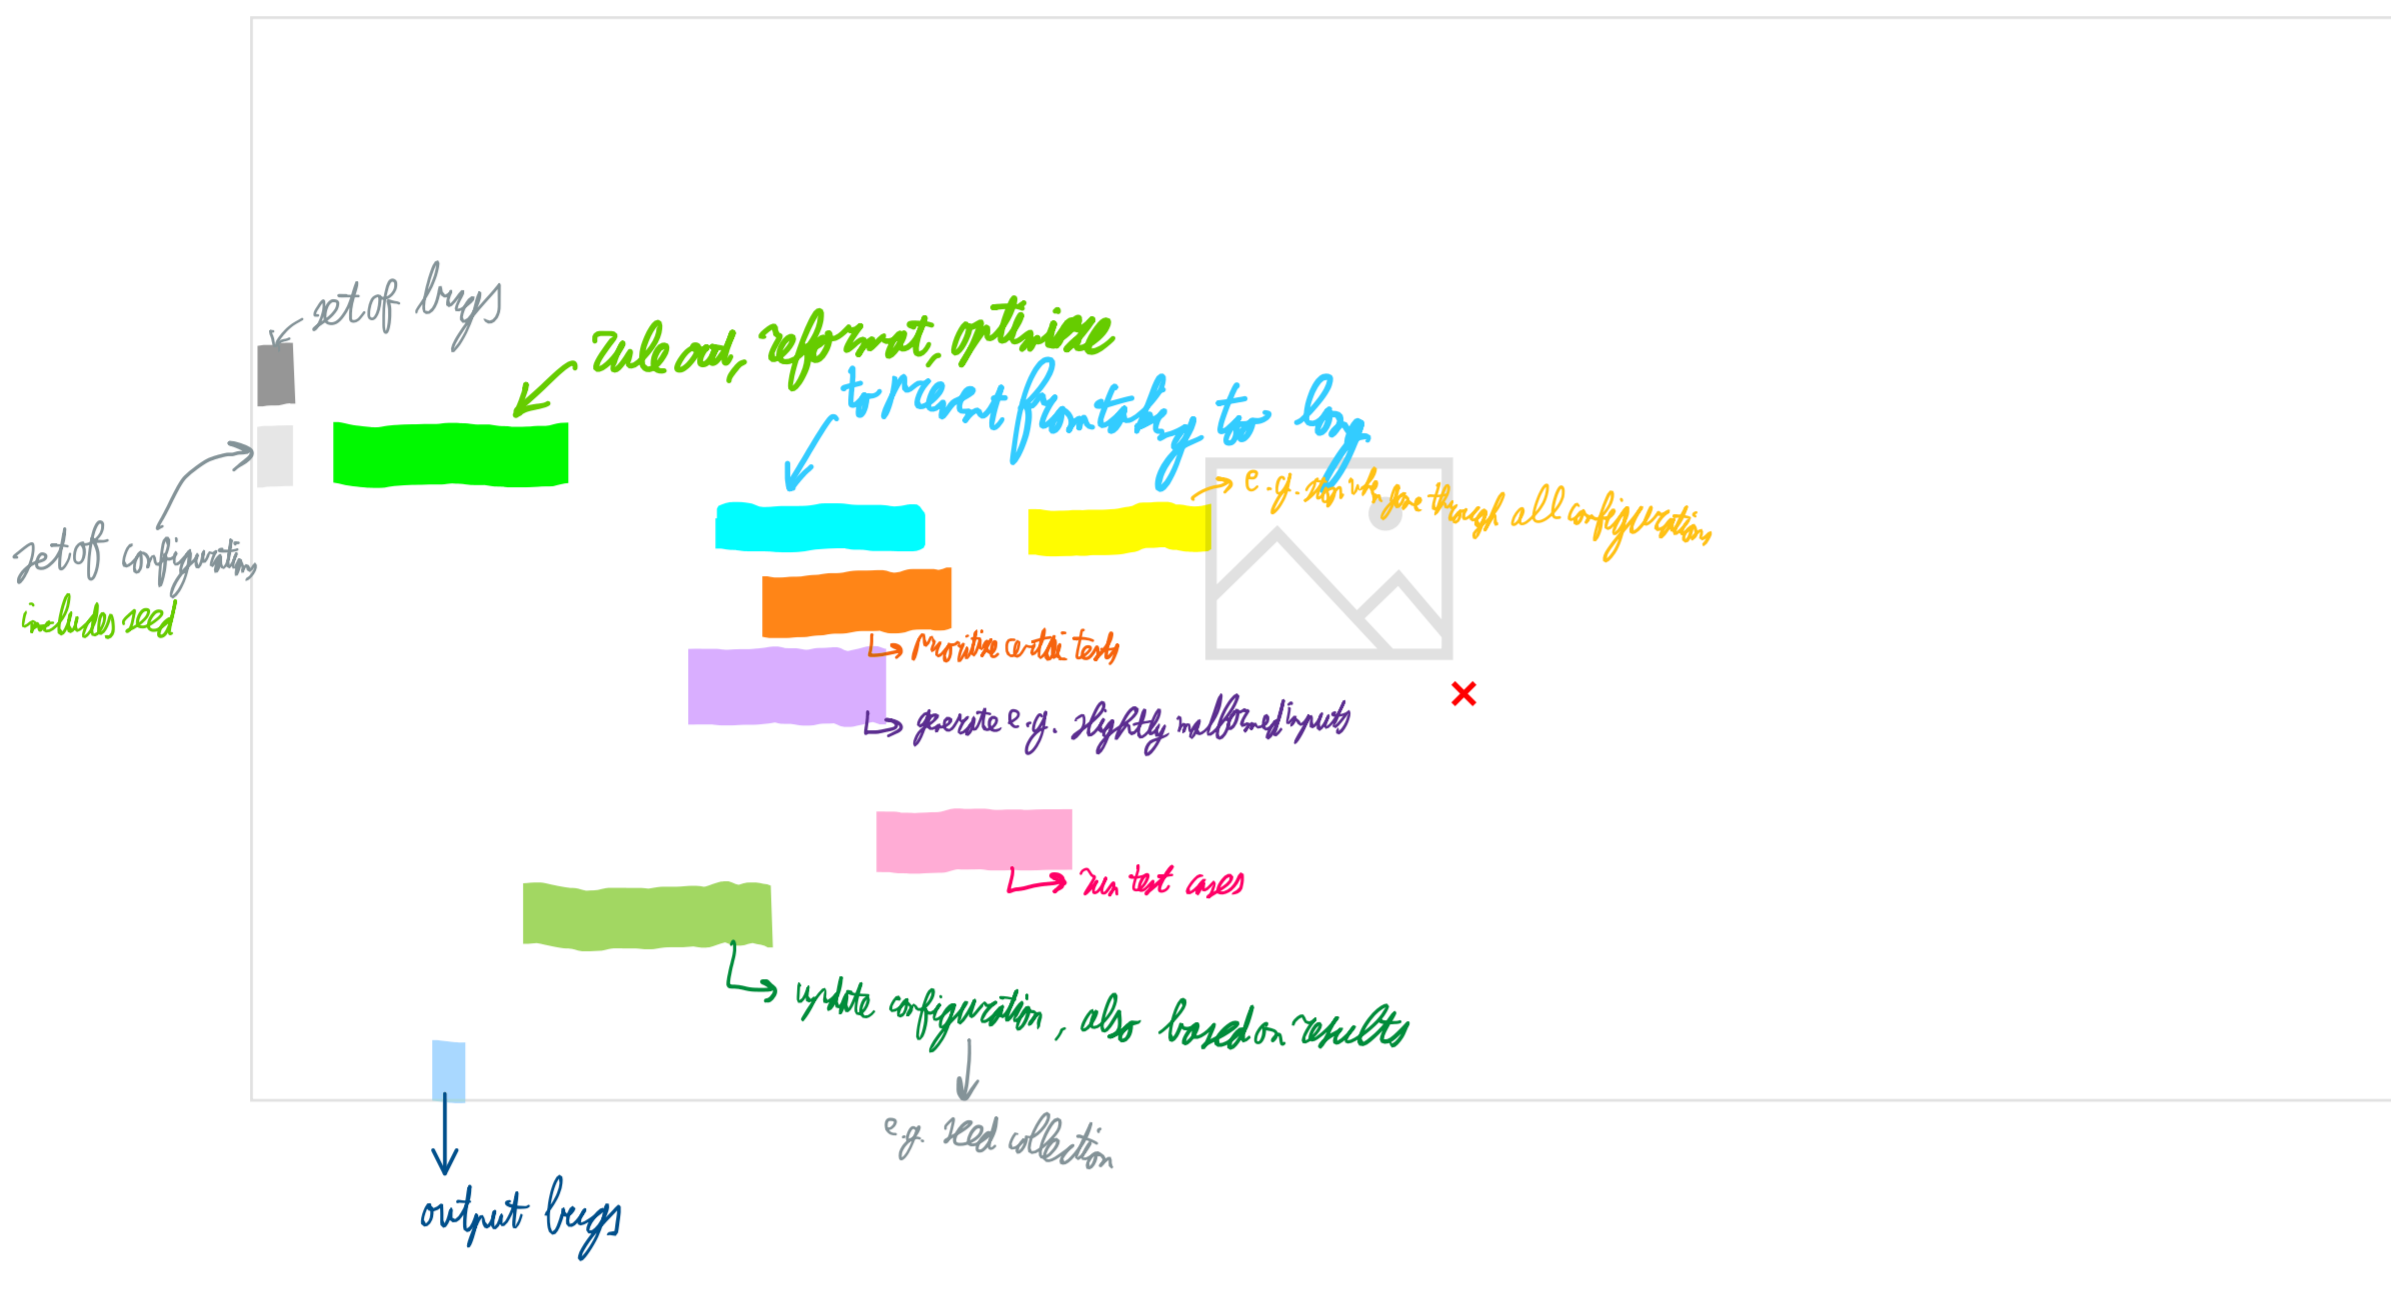 set of bugs
rule out, reformat, optimize
to prevent from taking too long
e.g. stop when gone through all configurations
set of configurations
includes seed
prioritize certain tests
generate e.g. slightly malformed inputs
run test cases
update configuration, also based on results
e.g. seed collection
output bugs